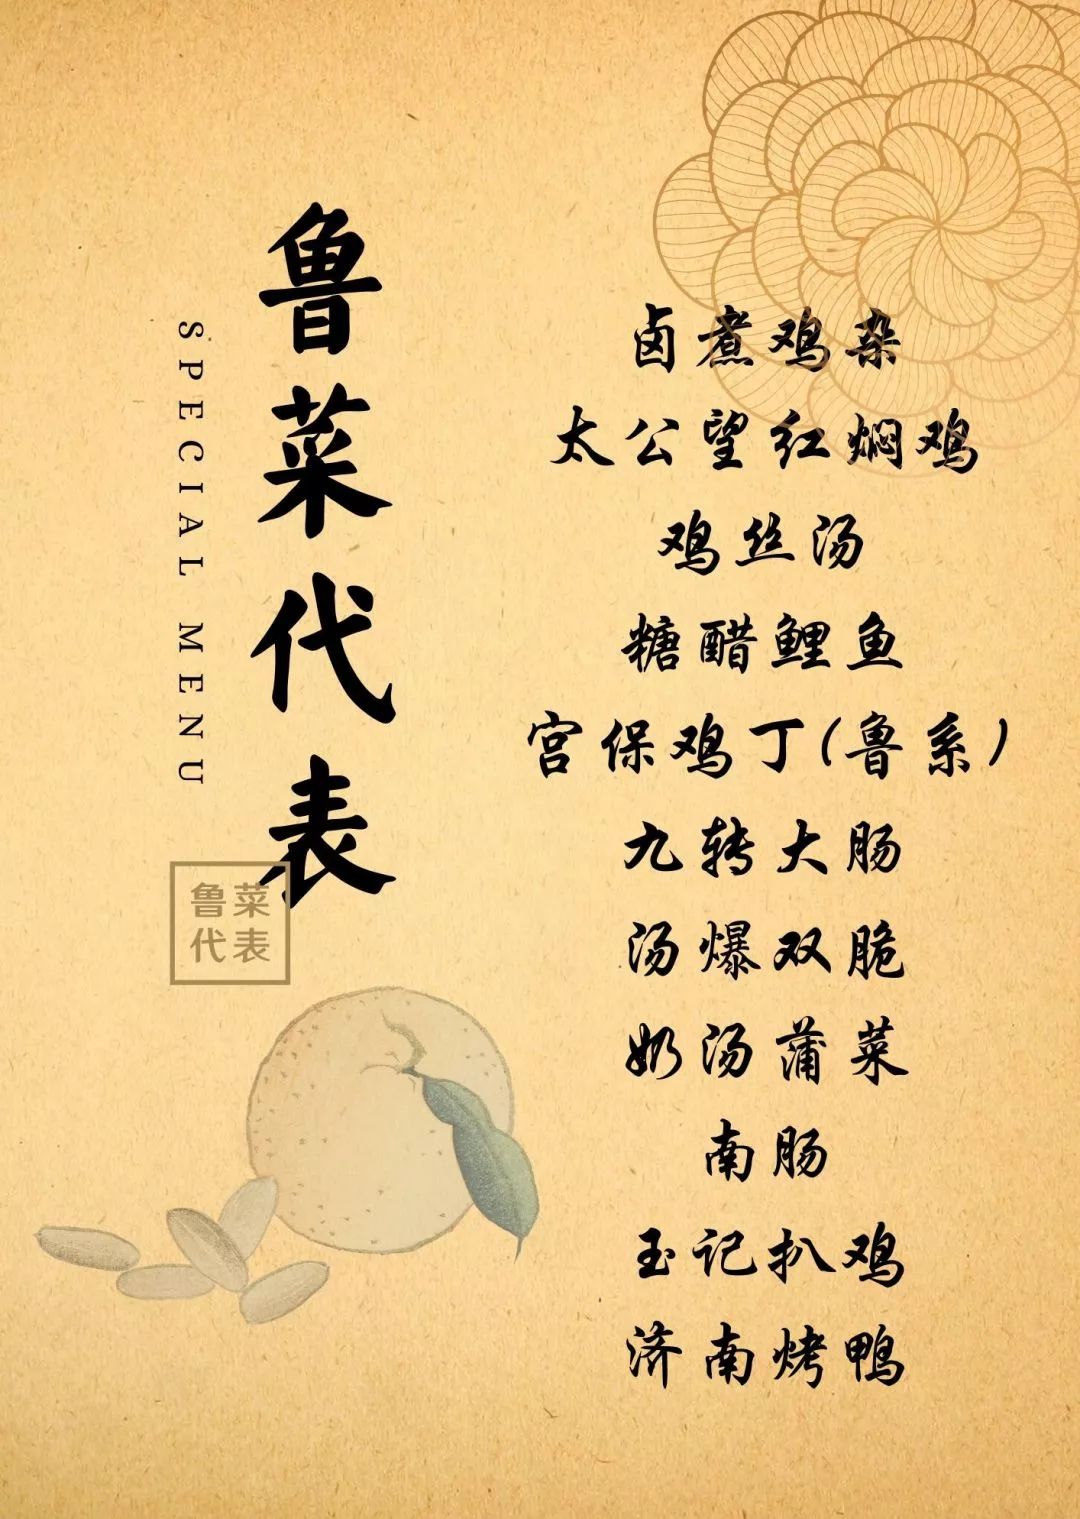 鲁菜代表
SPECIAL MENU
鲁菜
代表
卤煮鸡杂
太公望红焖鸡
鸡丝汤
糖醋鲤鱼
宫保鸡丁(鲁系)
九转大肠
汤爆双脆
奶汤蒲菜
南肠
玉记扒鸡
济南烤鸭